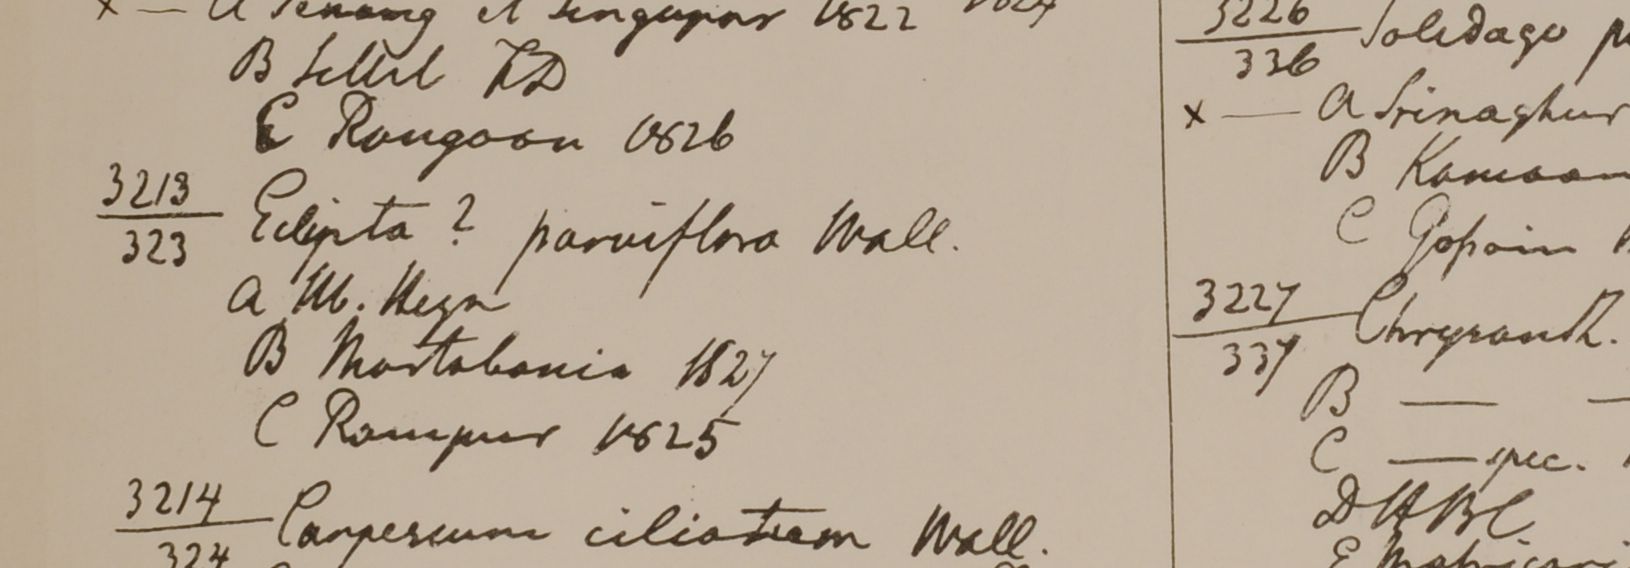 x — A Penang et Singapur 1822 1824
B Sillet FD
E Rangoon 1826
3213
323 Eclipta ? parviflora Wall.
A Hb. Heyn
B Martabania 1827
C Rampur 1825
3214
324 Carpesium ciliatum Wall.
3226
336 Solidago
x — A Srinaghur
B Kamaon
C Gosain
3227
337 Chrysanth.
B — —
C — spec.
D HBC
E Matricari